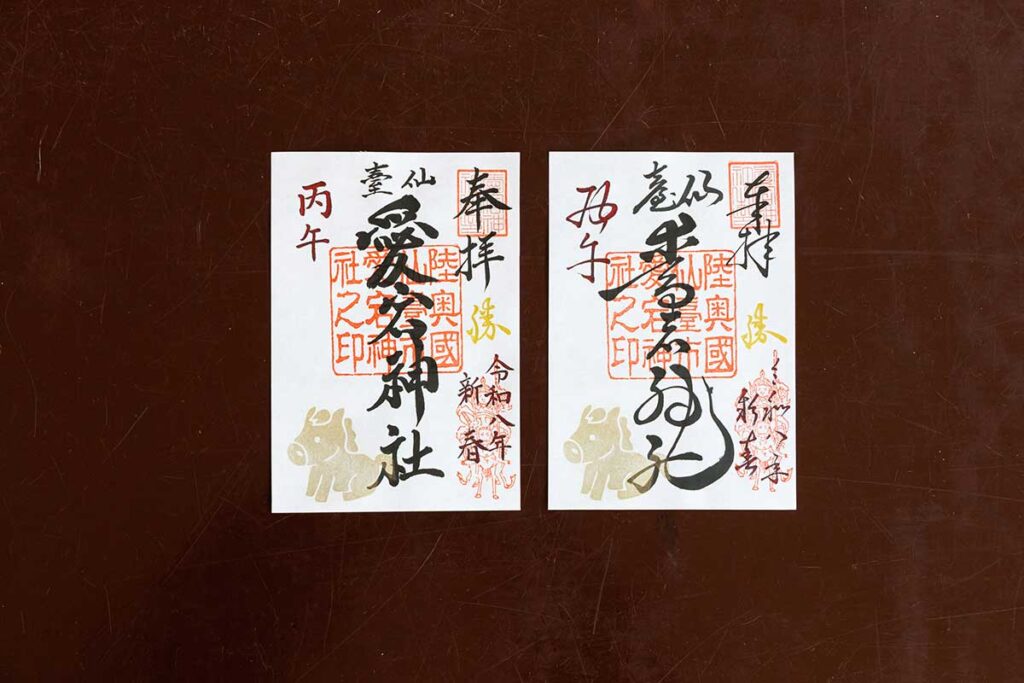 奉拝
勝
令和八年
新春
仙臺
愛宕神社
陸奥國
仙臺市
愛宕神
社之印
丙午
奉拝
勝
令和八年
新春
仙臺
陸奥國
仙臺市
愛宕神
社之印
丙午